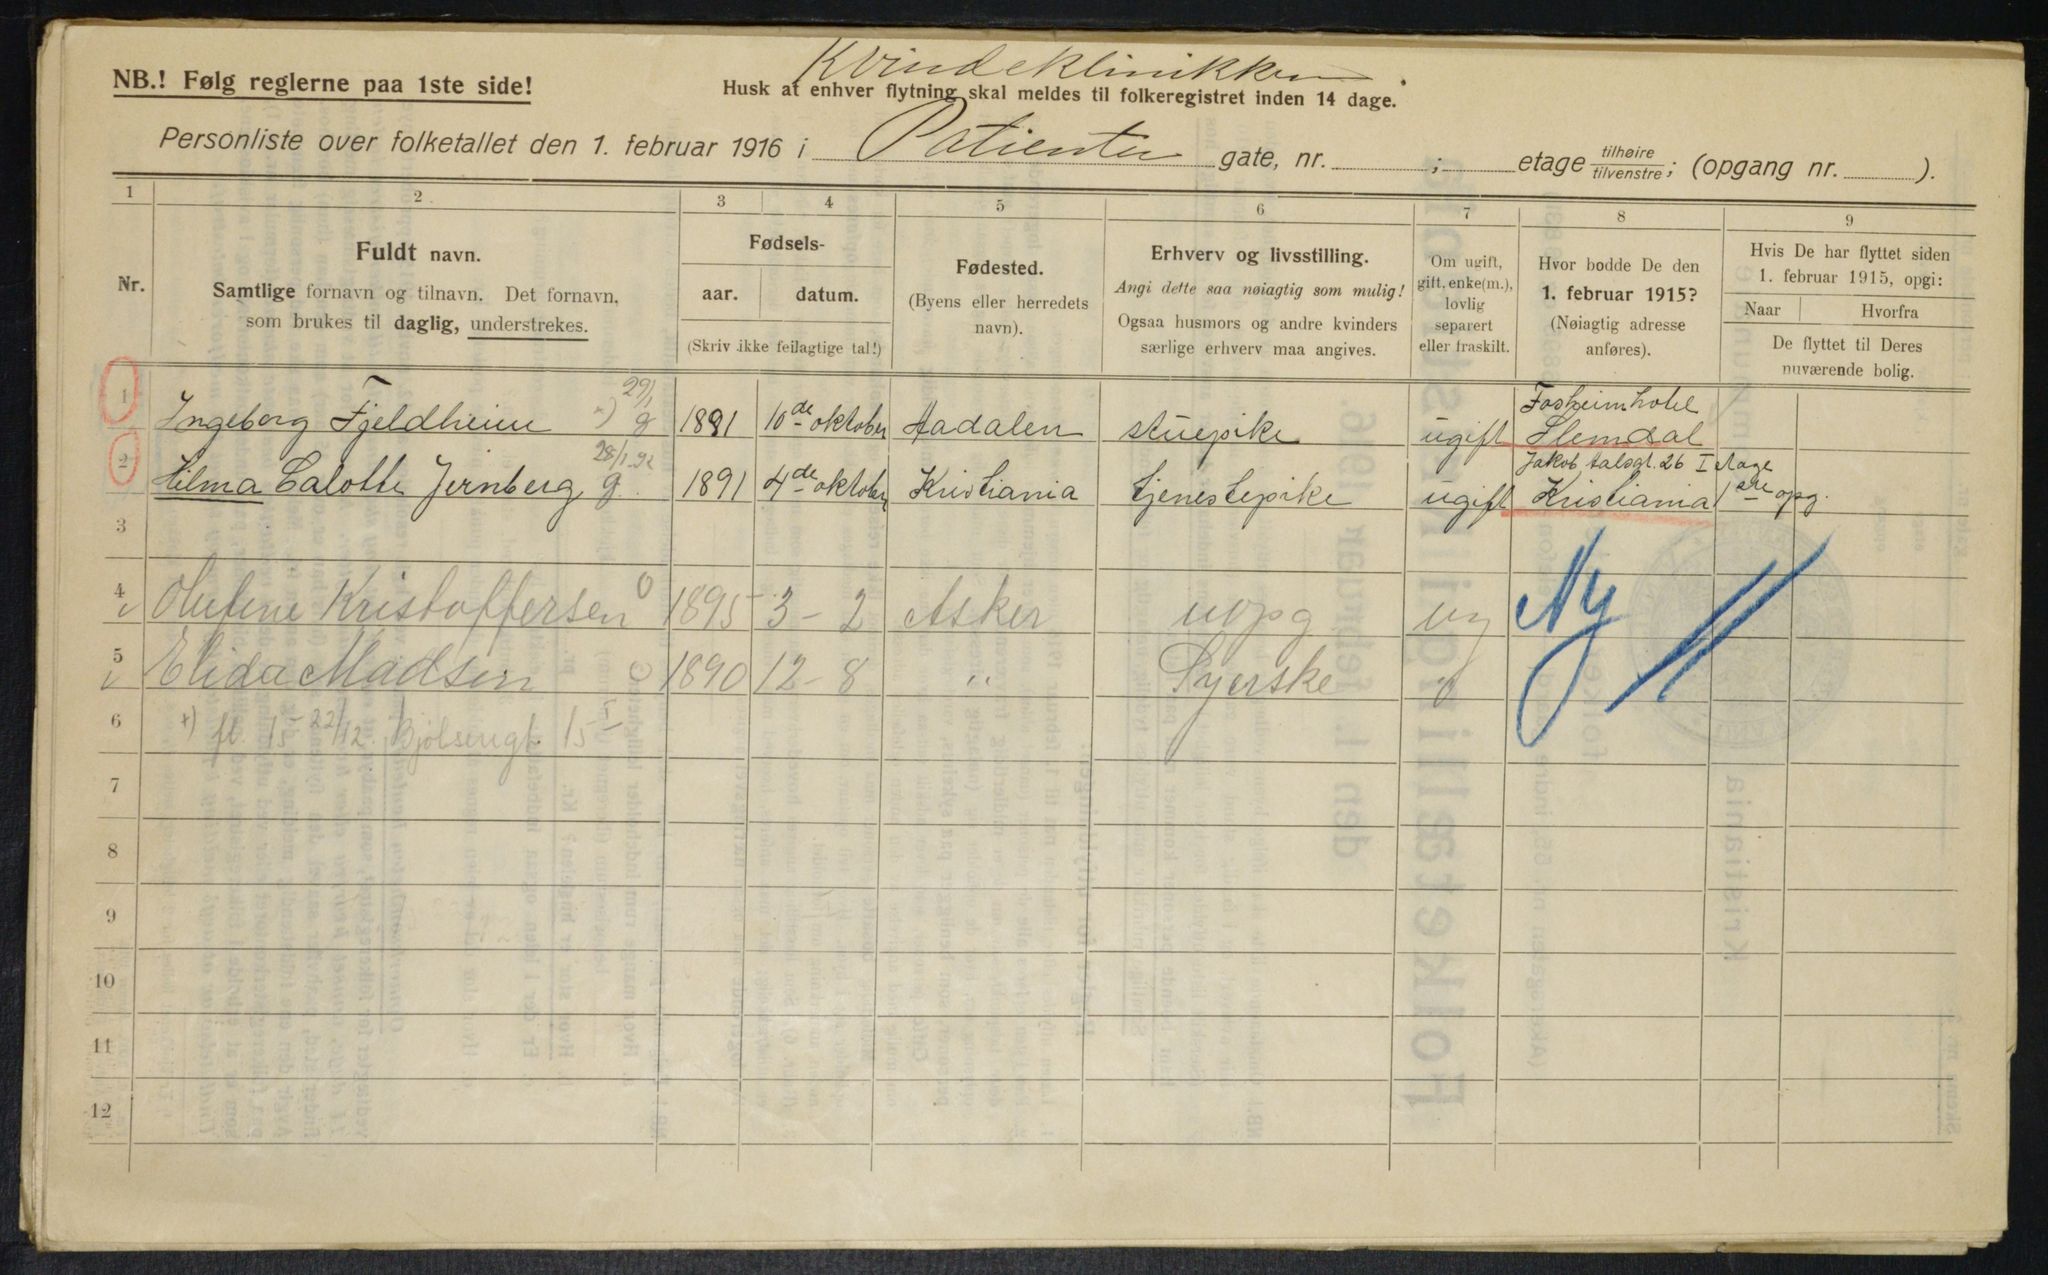 Kvindeklinikken.
NB.! Følg reglerne paa 1ste side!
Husk at enhver flytning skal meldes til folkeregistret inden 14 dage.
Personliste over folketallet den 1. februar 1916 i Patienter gate, nr. ; etage tilhøire/tilvenstre; (opgang nr. ).
1 2 3 4 5 6 7 8 9
Nr.
Fuldt navn.
Samtlige fornavn og tilnavn. Det fornavn,
som brukes til daglig, understrekes.
Fødsels-
aar. datum.
(Skriv ikke feilagtige tal!)
Fødested.
(Byens eller herredets
navn).
Erhverv og livsstilling.
Angi dette saa nøiagtig som mulig!
Ogsaa husmors og andre kvinders
særlige erhverv maa angives.
Om ugift,
gift, enke(m.),
lovlig
separert
eller fraskilt.
Hvor bodde De den
1. februar 1915?
(Nøiagtig adresse
anføres).
Hvis De har flyttet siden
1. februar 1915, opgi:
Naar Hvorfra
De flyttet til Deres
nuværende bolig.
29/1 Fosheimhotel
1 Ingeborg Fjeldheim x) g 1891 10de oktober Aadalen stuepike ugift Slemdal
28/1 92 Jakob Aalsgt. 26 I etage
2 Hilma Calotte Jernberg g 1891 4de oktober Kristiania tjenestepike ugift Kristiania 1ste opg.
3
4 Olufine Kristoffersen 0 1895 3-2 Asker uopg ug Ny
5 Elida Madsen 1890 12-8 " Syerske "
6 x) fl. 15 22/12 Bjølsengt. 15
7
8
9
10
11
12